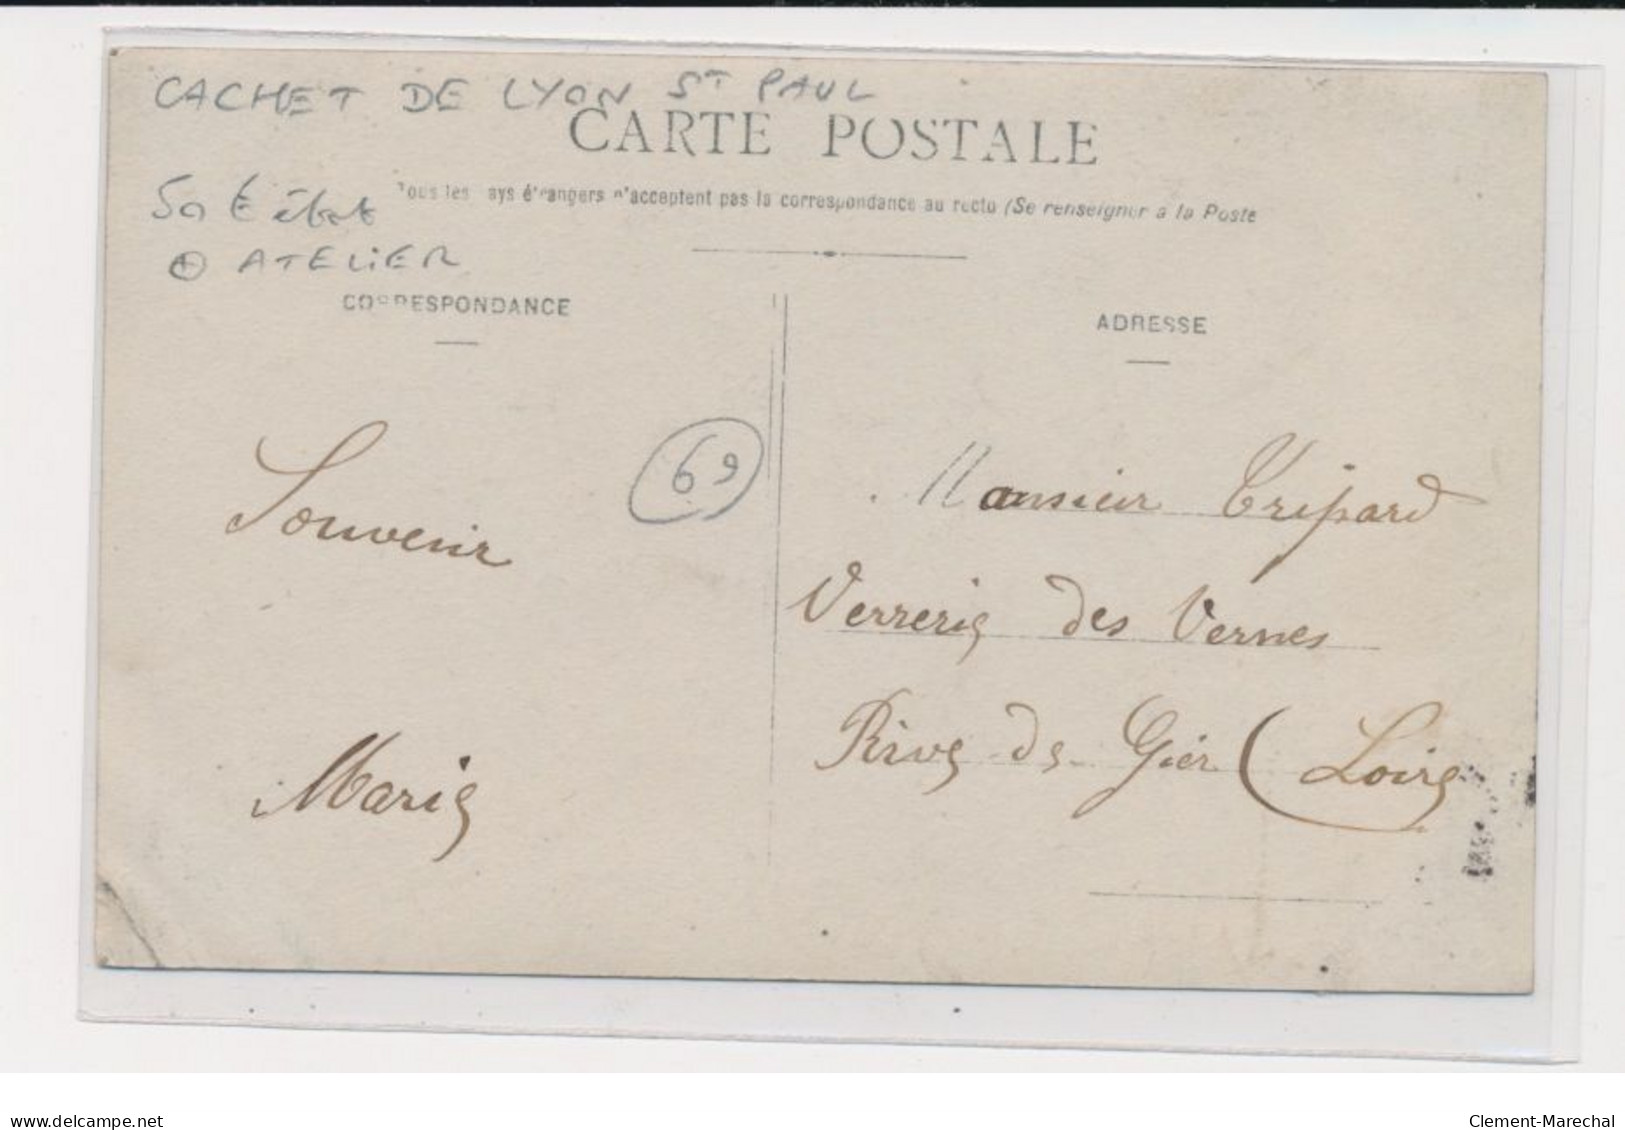 CACHET DE LYON ST PAUL
CARTE POSTALE
Tous les pays étrangers n'acceptent pas la correspondance au recto (Se renseigner à la Poste
50 € état
+ ATELIER
CORRESPONDANCE
ADRESSE
69
Souvenir
Marie
Monsieur Tripard
Verrerie des Vernes
Rive de Gier (Loire
delcampe.net
Clement-Marechal